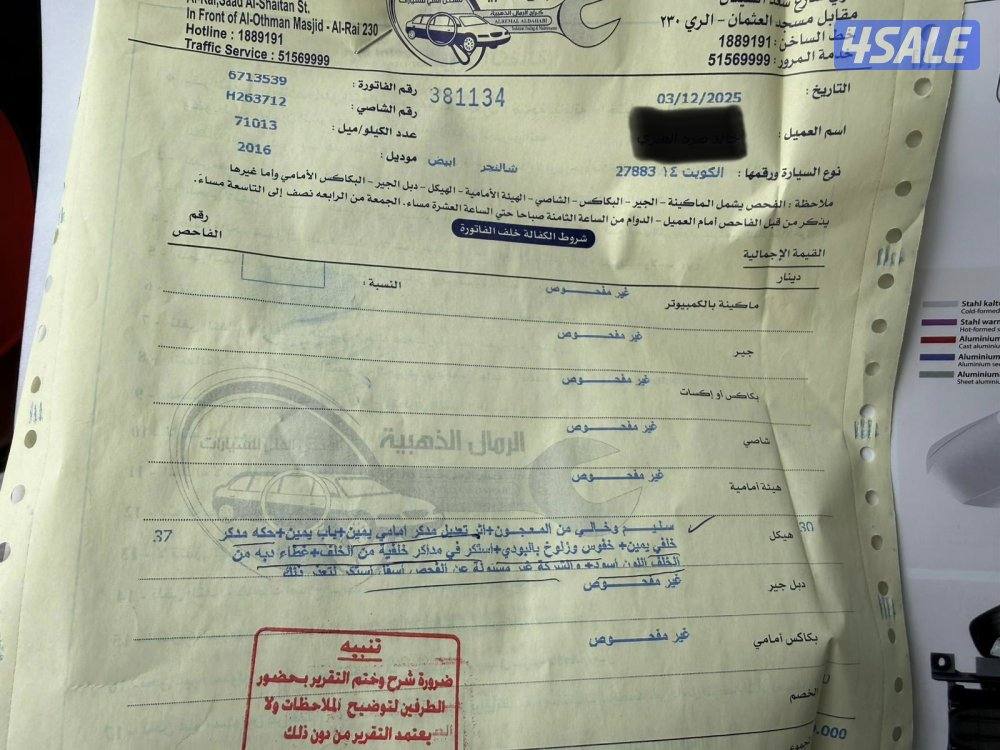 Al-Rai,Saad Al-Shaitan St.
In Front of Al-Othman Masjid - Al-Rai 230
Hotline : 1889191
Traffic Service : 51569999
ALREMAL ALDAHABI
مقابل مسجد العثمان - الري ٢٣٠
خط الساخن : 1889191
خدمة المرور : 51569999
4SALE
التاريخ : 03/12/2025
381134
رقم الفاتورة : 6713539
اسم العميل :
رقم الشاصي : H263712
عدد الكيلو/ميل : 71013
نوع السيارة ورقمها : الكويت ١٤ 27883 شالنجر ابيض
موديل : 2016
ملاحظة : الفحص يشمل الماكينة - الجير - البكاكس - الشاصي - الهيئة الأمامية - الهيكل - دبل الجير - البكاكس الأمامي وأما غيرها
يذكر من قبل الفاحص أمام العميل - الدوام من الساعة الثامنة صباحا حتى الساعة العشرة مساء. الجمعة من الرابعه نصف إلى التاسعة مساءً.
شروط الكفالة خلف الفاتورة
القيمة الإجمالية
دينار
رقم
الفاحص
ماكينة بالكمبيوتر غير مفحوص النسبة :
جير غير مفحوص
بكاكس أو إكسات غير مفحوص
شاصي غير مفحوص
الرمال الذهبية
هيئة أمامية غير مفحوص
30 هيكل سليم وخالي من المعجون+اثر تعديل مدكر امامي يمين+باب يمين+حكه مدكر 37
خلفي يمين+ خفوس وزلوخ بالبودي+استكر في مداكر خلفية من الخلف+غطاء دبه من
الخلف اللون اسود+ والشركة غير مسئولة عن الفحص أسفل استكر لتعذر ذلك
دبل جير غير مفحوص
بكاكس أمامي غير مفحوص
الخصم
تنبيه
ضرورة شرح وختم التقرير بحضور
الطرفين لتوضيح الملاحظات ولا
يعتمد التقرير من دون ذلك
Stahl kalt
Cold-formed
Stahl warm
Hot-formed s
Aluminium
Cast aluminiu
Aluminium
Aluminium se
Aluminium
Sheet aluminiu